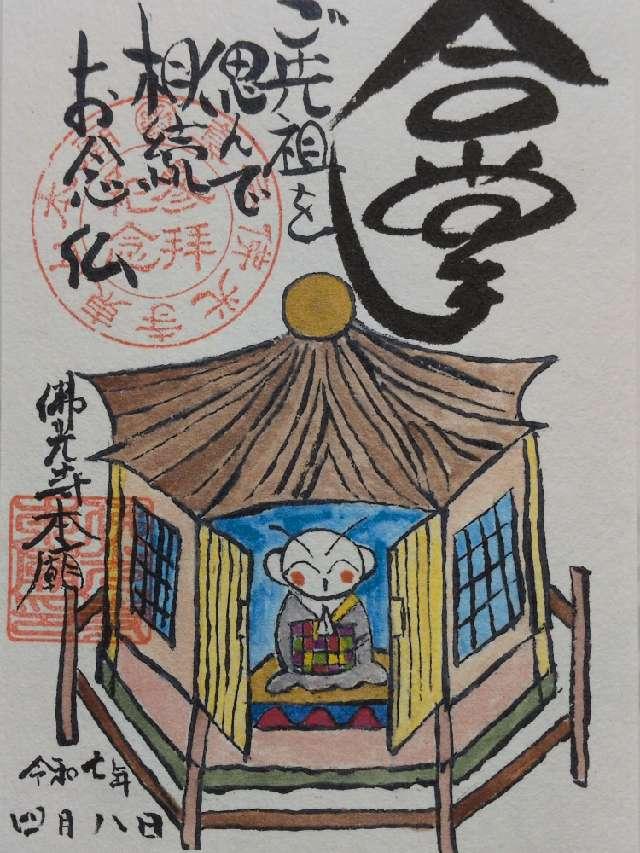 合掌
ご先祖を
偲んで
相続
お念仏
参拝
記念
佛光寺本廟
令和七年
四月八日